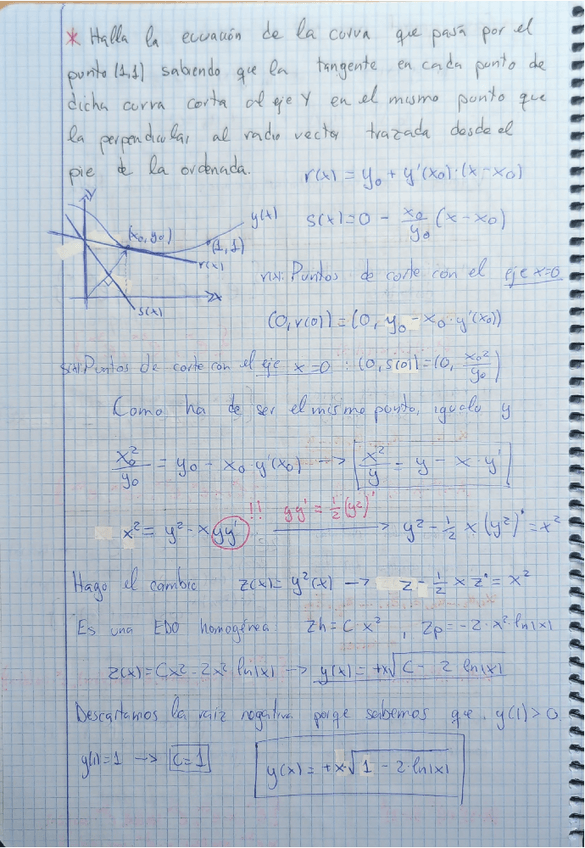 * Halla la ecuación de la curva que pasa por el
punto (1,1) sabiendo que la tangente en cada punto de
dicha curva corta al eje Y en el mismo punto que
la perpendicular al radio vector trazada desde el
pie de la ordenada.
r(x) = y₀ + y'(x₀)·(x-x₀)
s(x) = 0 - x₀/y₀ (x-x₀)
y
(x₀,y₀)
y(x)
(1,1)
r(x)
x
s(x)
r(x): Puntos de corte con el eje x=0
(0, r(0)) = (0, y₀ - x₀·y'(x₀))
s(x): Puntos de corte con el eje x=0 : (0, s(0)) = (0, x₀²/y₀)
Como ha de ser el mismo punto, igualo y
x₀²/y₀ = y₀ - x₀·y'(x₀) → x²/y = y - x·y'
x² = y² - x yy' !! yy' = ½(y²)' → y² - ½ x (y²)' = x²
Hago el cambio z(x) = y²(x) → z - ½ x z' = x²
Es una EDO homogénea: Zh = C·x² , Zp = -2·x²·ln|x|
z(x) = Cx² - 2x² ln|x| → y(x) = +x√(C - 2 ln|x|)
Descartamos la raíz negativa porqe sabemos que y(1)>0
y(1)=1 → C=1
y(x) = +x·√(1 - 2·ln|x|)